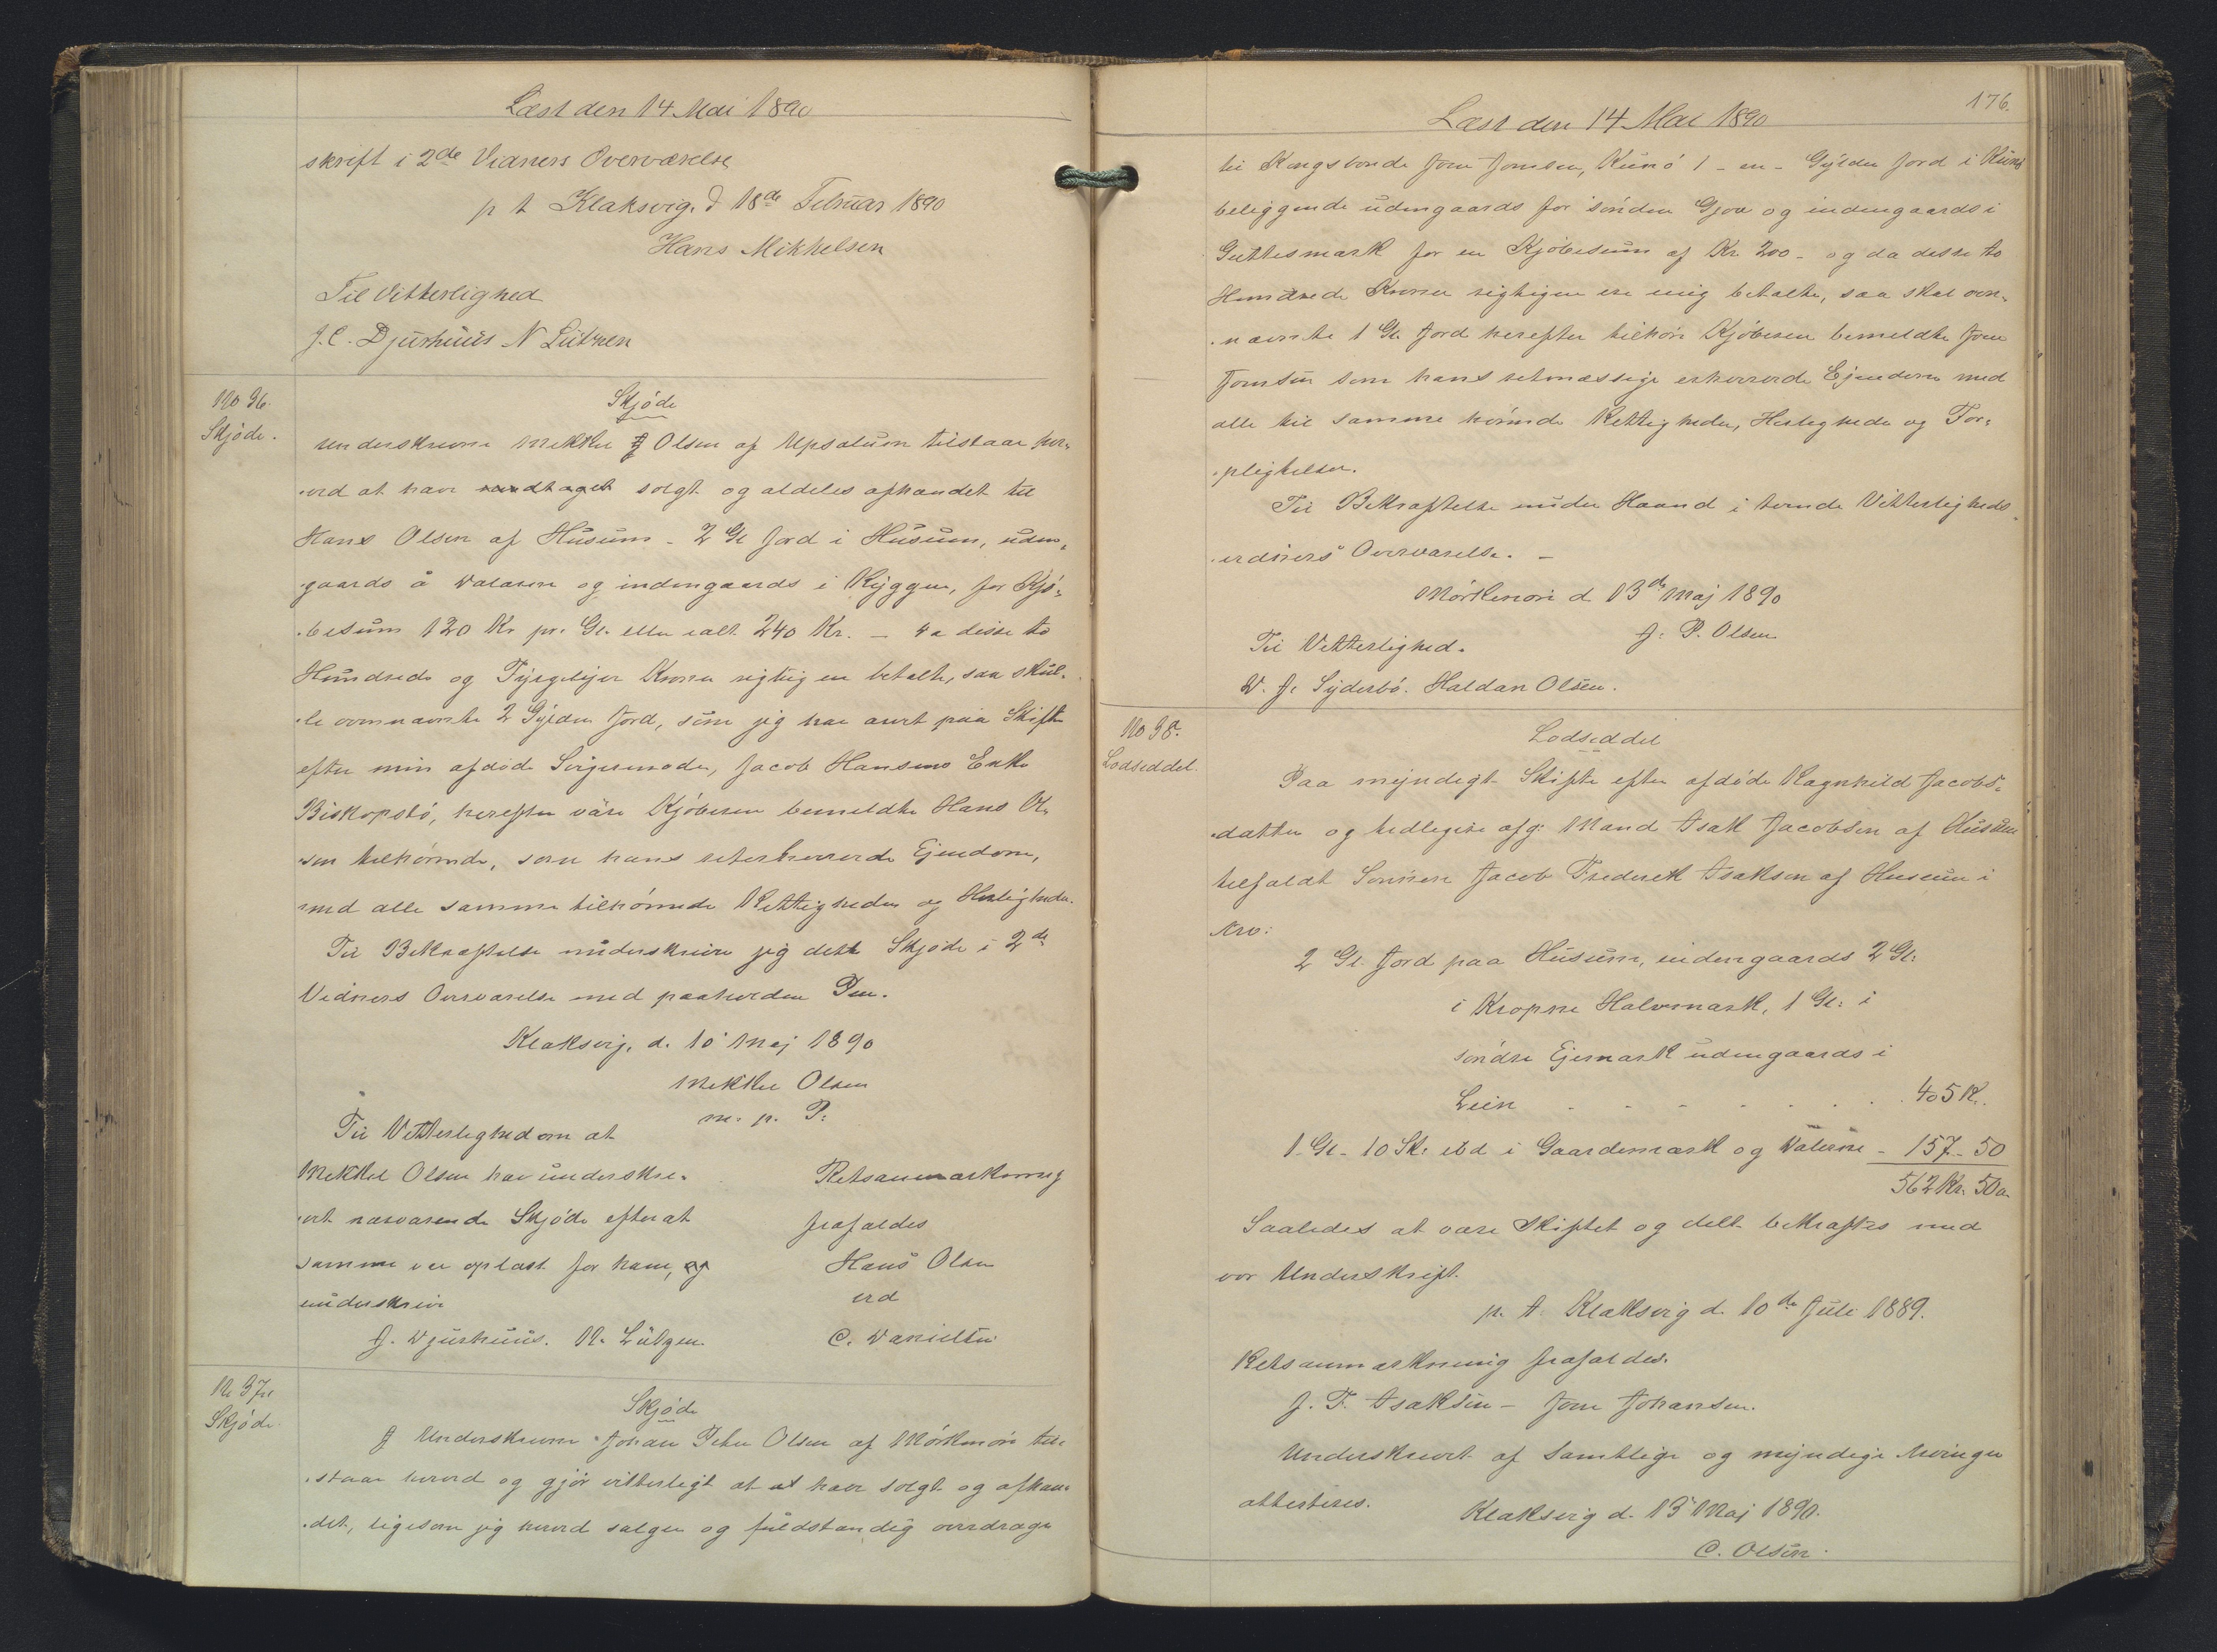 Læst den 14 Mai 1890
skrift i 2de Vidners Overværelse
p t Klaksvig. d 18de Februar 1890
Hans Mikkelsen
Til Vitterlighed
J. C. Djurhuus N Lützen
No 36.
Skjøde.
Skjøde
Underskrevne Mikkel J Olsen af Upsalum tilstaar her-
ved at have modtaget solgt og aldeles afhændet til
Hans Olsen af Husum - 2 Gl Jord i Husum, uden-
gaards å Dalarne og indengaards i Ryggen, for Kjø-
besum 120 Kr pr. Gl. eller ialt 240 Kr. - da disse to
Hundrede og Fyrgetyve Kroner rigtig er betalte, saa skul-
le ovennævnte 2 Gylden Jord, som jeg har arvet paa Skifte
efter min afdøde Svigermoder, Jacob Hansens Enke
Biskopstø, herefter være Kjøberen bemeldte Hans Ol-
sen tilhørende, som hans reterhvervede Ejendom,
med alle samme tilhørende Rettigheder og Herligheder.
Til Bekræftelse underskriver jeg dette Skjøde i 2de
Vidners Overværelse med paaholden Pen.
Klaksvig, d. 10 Maj 1890
Mikkel Olsen
m. p. P.
Til Vitterlighed om at
Mikkel Olsen har underskre-
vet nærværende Skjøde efter at
samme var oplæst for ham, og
underskriver
J. Djurhuus. N. Lützen.
Retsanmærkning
frafaldes
Hans Olsen
ved
C. Danielsen
No 37.
Skjøde.
Skjøde
J Underskrevne Johan Peter Olsen af Mørkenøri til-
staar herved og gjør vitterligt at at have solgt og afhæn-
det, ligesom jeg herved sælger og fuldstændig overdrager
176.
Læst den 14 Mai 1890
til Kongsbonde Joen Joensen, Kunø 1 - en - Gylden Jord i Kunø
beliggende udengaards for sønden Gjov og indengaards i
Guttesmark for en Kjøbesum af Kr. 200 - og da desse to
Hundrede Kroner rigtigen ere mig betalte, saa skal oven-
nævnte 1 Gl. Jord herefter tilhøre Kjøberen bemeldte Joen
Joensen som hans retmæssige erhvervede Ejendom med
alle til samme hørende Rettigheder, Herligheder og For-
pligtelser.
Til Bekræftelse under Haand i tvende Vitterligheds
vidners Overværelse. -
Mørkenøri d. 13de Maj 1890
J. P. Olsen
Til Vitterlighed.
D. J. Syderbø. Haldan Olsen.
No 38.
Lodseddel.
Lodseddel
Paa myndigt Skifte efter afdøde Ragnhild Jacobs-
datter og tidligere afg. Mand Isak Jacobsen af Husum
tilfaldt Sønnen Jacob Frederik Isaksen af Husum i
Arv:
2 Gl. Jord paa Husum, indengaards 2 Gl.
i Kropne Halvmark, 1 Gl. i
søndre Ejermark udengaards i
Lein - - - - - 405 K.
1 Gl - 10 Sk. ibd i Gaardemark og Dalerne - 157 - 50
562 Kr. 50 ø.
Saaledes at være Skiftet og delt bekræftes med
vor Underskrift.
p. t. Klaksvig d. 10de Juli 1889.
Retsanmærkning frafaldes.
J. F. Isaksen - Joen Johansen.
Underskrevet af Samtlige og myndige Arvinger
attesteres.
Klaksvig d. 13 Maj 1890.
C. Olsen.